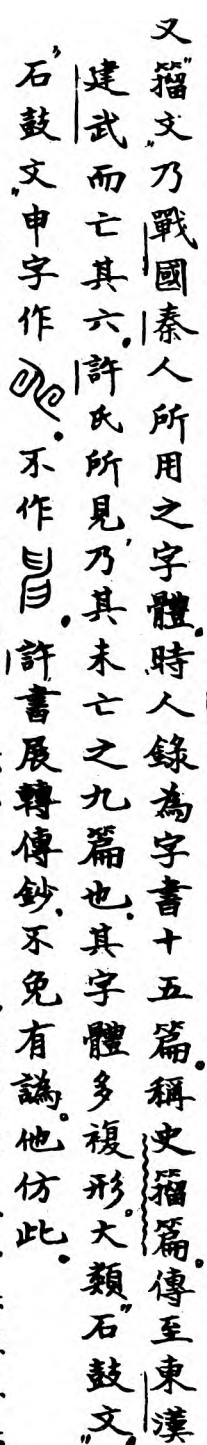 又“籀文”乃戰國秦人所用之字體。時人錄為字書十五篇。稱史籀篇。傳至東漢
建武而亡其六。許氏所見，乃其未亡之九篇也。其字體多複形。大類“石鼓文”。
“石鼓文”申字作。不作。許書展轉傳鈔。不免有譌。他仿此。